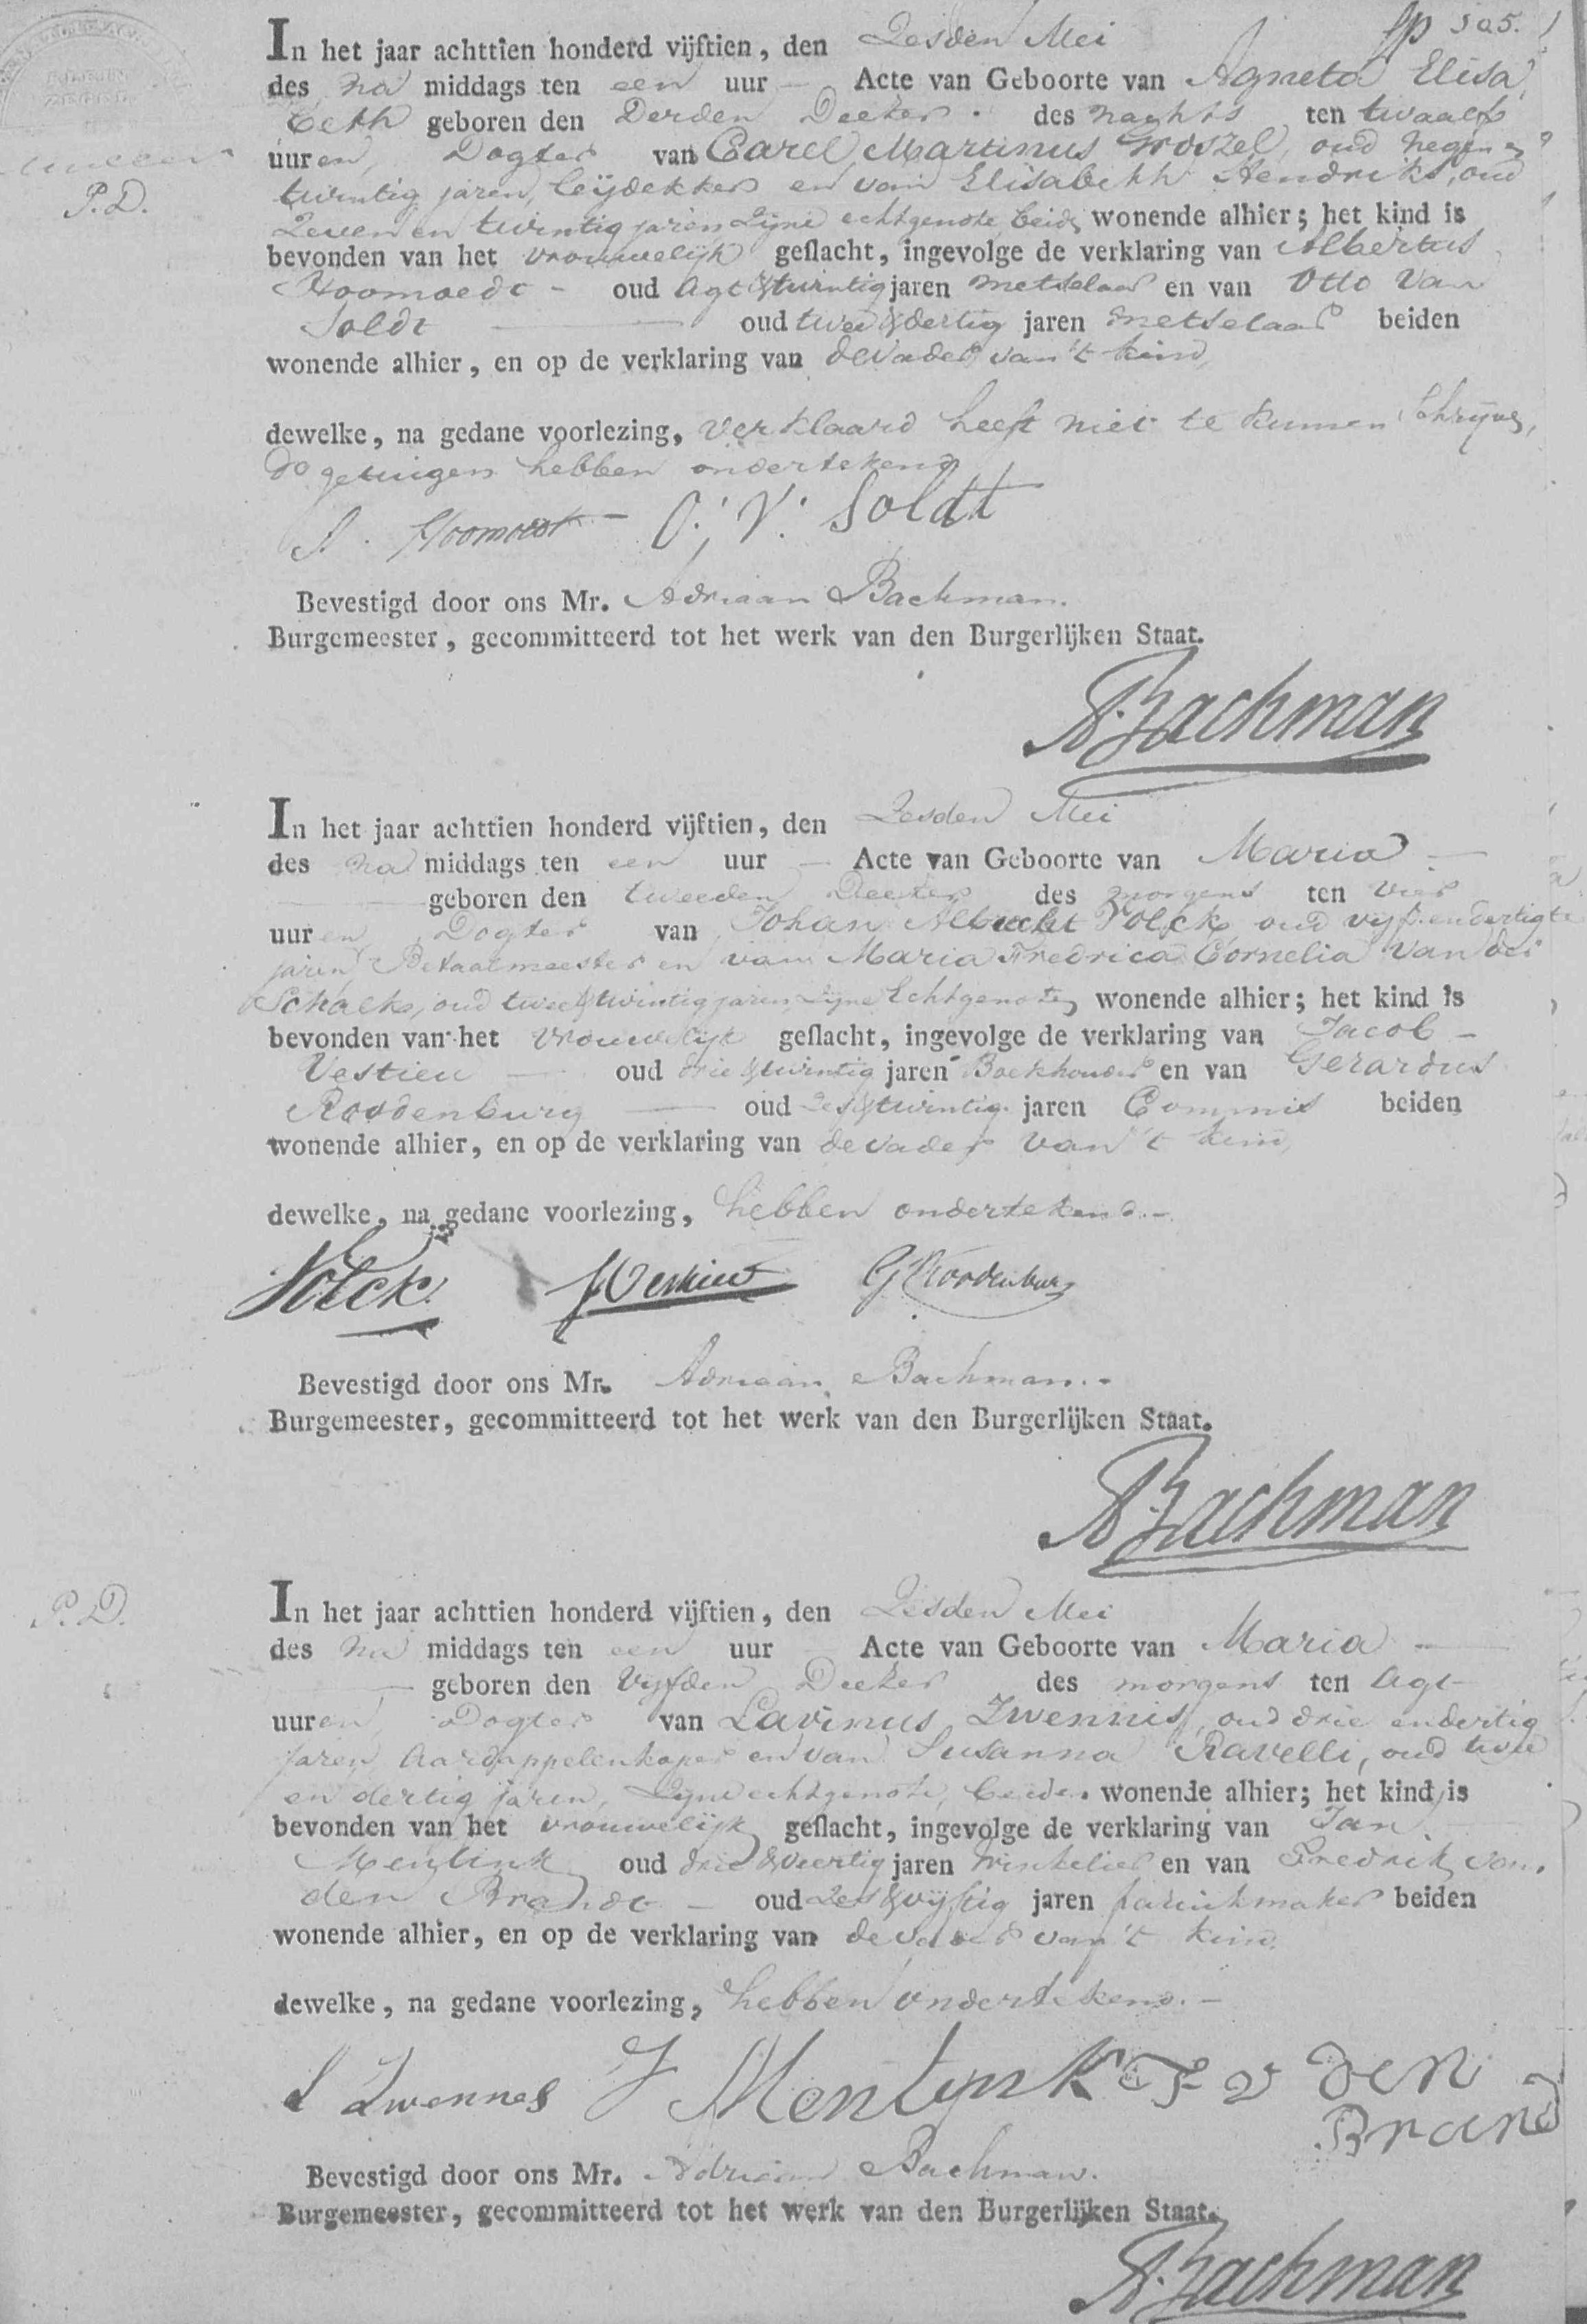 In het jaar achttien honderd vijftien, den Zesden Mei
des na middags ten een uur — Acte van Geboorte van Agneta Elisa
beth geboren den Derden Deezer des naghts ten twaalf
uuren, Dogter van Carel Martinus oud negen en
twintig jaren, leijdekker en van Elisabeth Hendriks, oud
Zeven en twintig jaren Zijne echtgenote, beide wonende alhier; het kind is
bevonden van het vrouwelijk geslacht, ingevolge de verklaring van Albertus
oud agt & twintig jaren metselaar en van Otto van
Soldt — oud twee & dertig jaren metselaar beiden
wonende alhier, en op de verklaring van de vader van 't kind,
dewelke, na gedane voorlezing, verklaard heeft niet te kunnen Schrijven,
de getuigen hebben ondertekend
A. O; V: Soldt
Bevestigd door ons Mr. Adriaan Bachman.
Burgemeester, gecommitteerd tot het werk van den Burgerlijken Staat.
ABachman
P.D.
In het jaar achttien honderd vijftien, den Zesden Mei
des na middags ten een uur — Acte van Geboorte van Maria —
— geboren den tweeden Deezer des morgens ten vier
uuren, Dogter van Johan Albrecht Volck, oud vijf en dertig
jaren Betaalmeester en van Maria Fredrica Cornelia van der
Schalk, oud twee & twintig jaren, Zijne Echtgenote, wonende alhier; het kind is
bevonden van het vrouwelijk geslacht, ingevolge de verklaring van Jacob —
Vestieu — oud drie & twintig jaren Boekhouder en van Gerardus
Roodenburg — oud Zes & twintig jaren Commis beiden
wonende alhier, en op de verklaring van de vader van 't kind,
dewelke, na gedane voorlezing, hebben ondertekend.—
Volck JVestieu GRoodenburg
Bevestigd door ons Mr. Adriaan Bachman.
Burgemeester, gecommitteerd tot het werk van den Burgerlijken Staat.
ABachman
P.D.
In het jaar achttien honderd vijftien, den Zesden Mei
des na middags ten een uur — Acte van Geboorte van Maria —
— geboren den Vijfden Deezer des morgens ten Agt
uuren, Dogter van Lavinus Zwennis, oud drie en dertig
Jaren Aardappelenkoper en van Susanna Ravelli, oud twee
en dertig jaren, Zijne echtgenote, beide wonende alhier; het kind is
bevonden van het vrouwelijk geslacht, ingevolge de verklaring van Jan
Mentink oud drie & veertig jaren Winkelier en van Fredrik van
den Brandt — oud Zes & vijftig jaren paruikmaker beiden
wonende alhier, en op de verklaring van de vader van 't kind.
dewelke, na gedane voorlezing, hebben ondertekend.—
L Zwennes J Mentynk F v Den
Brand
Bevestigd door ons Mr. Adriaan Bachman.
Burgemeester, gecommitteerd tot het werk van den Burgerlijken Staat.
ABachman